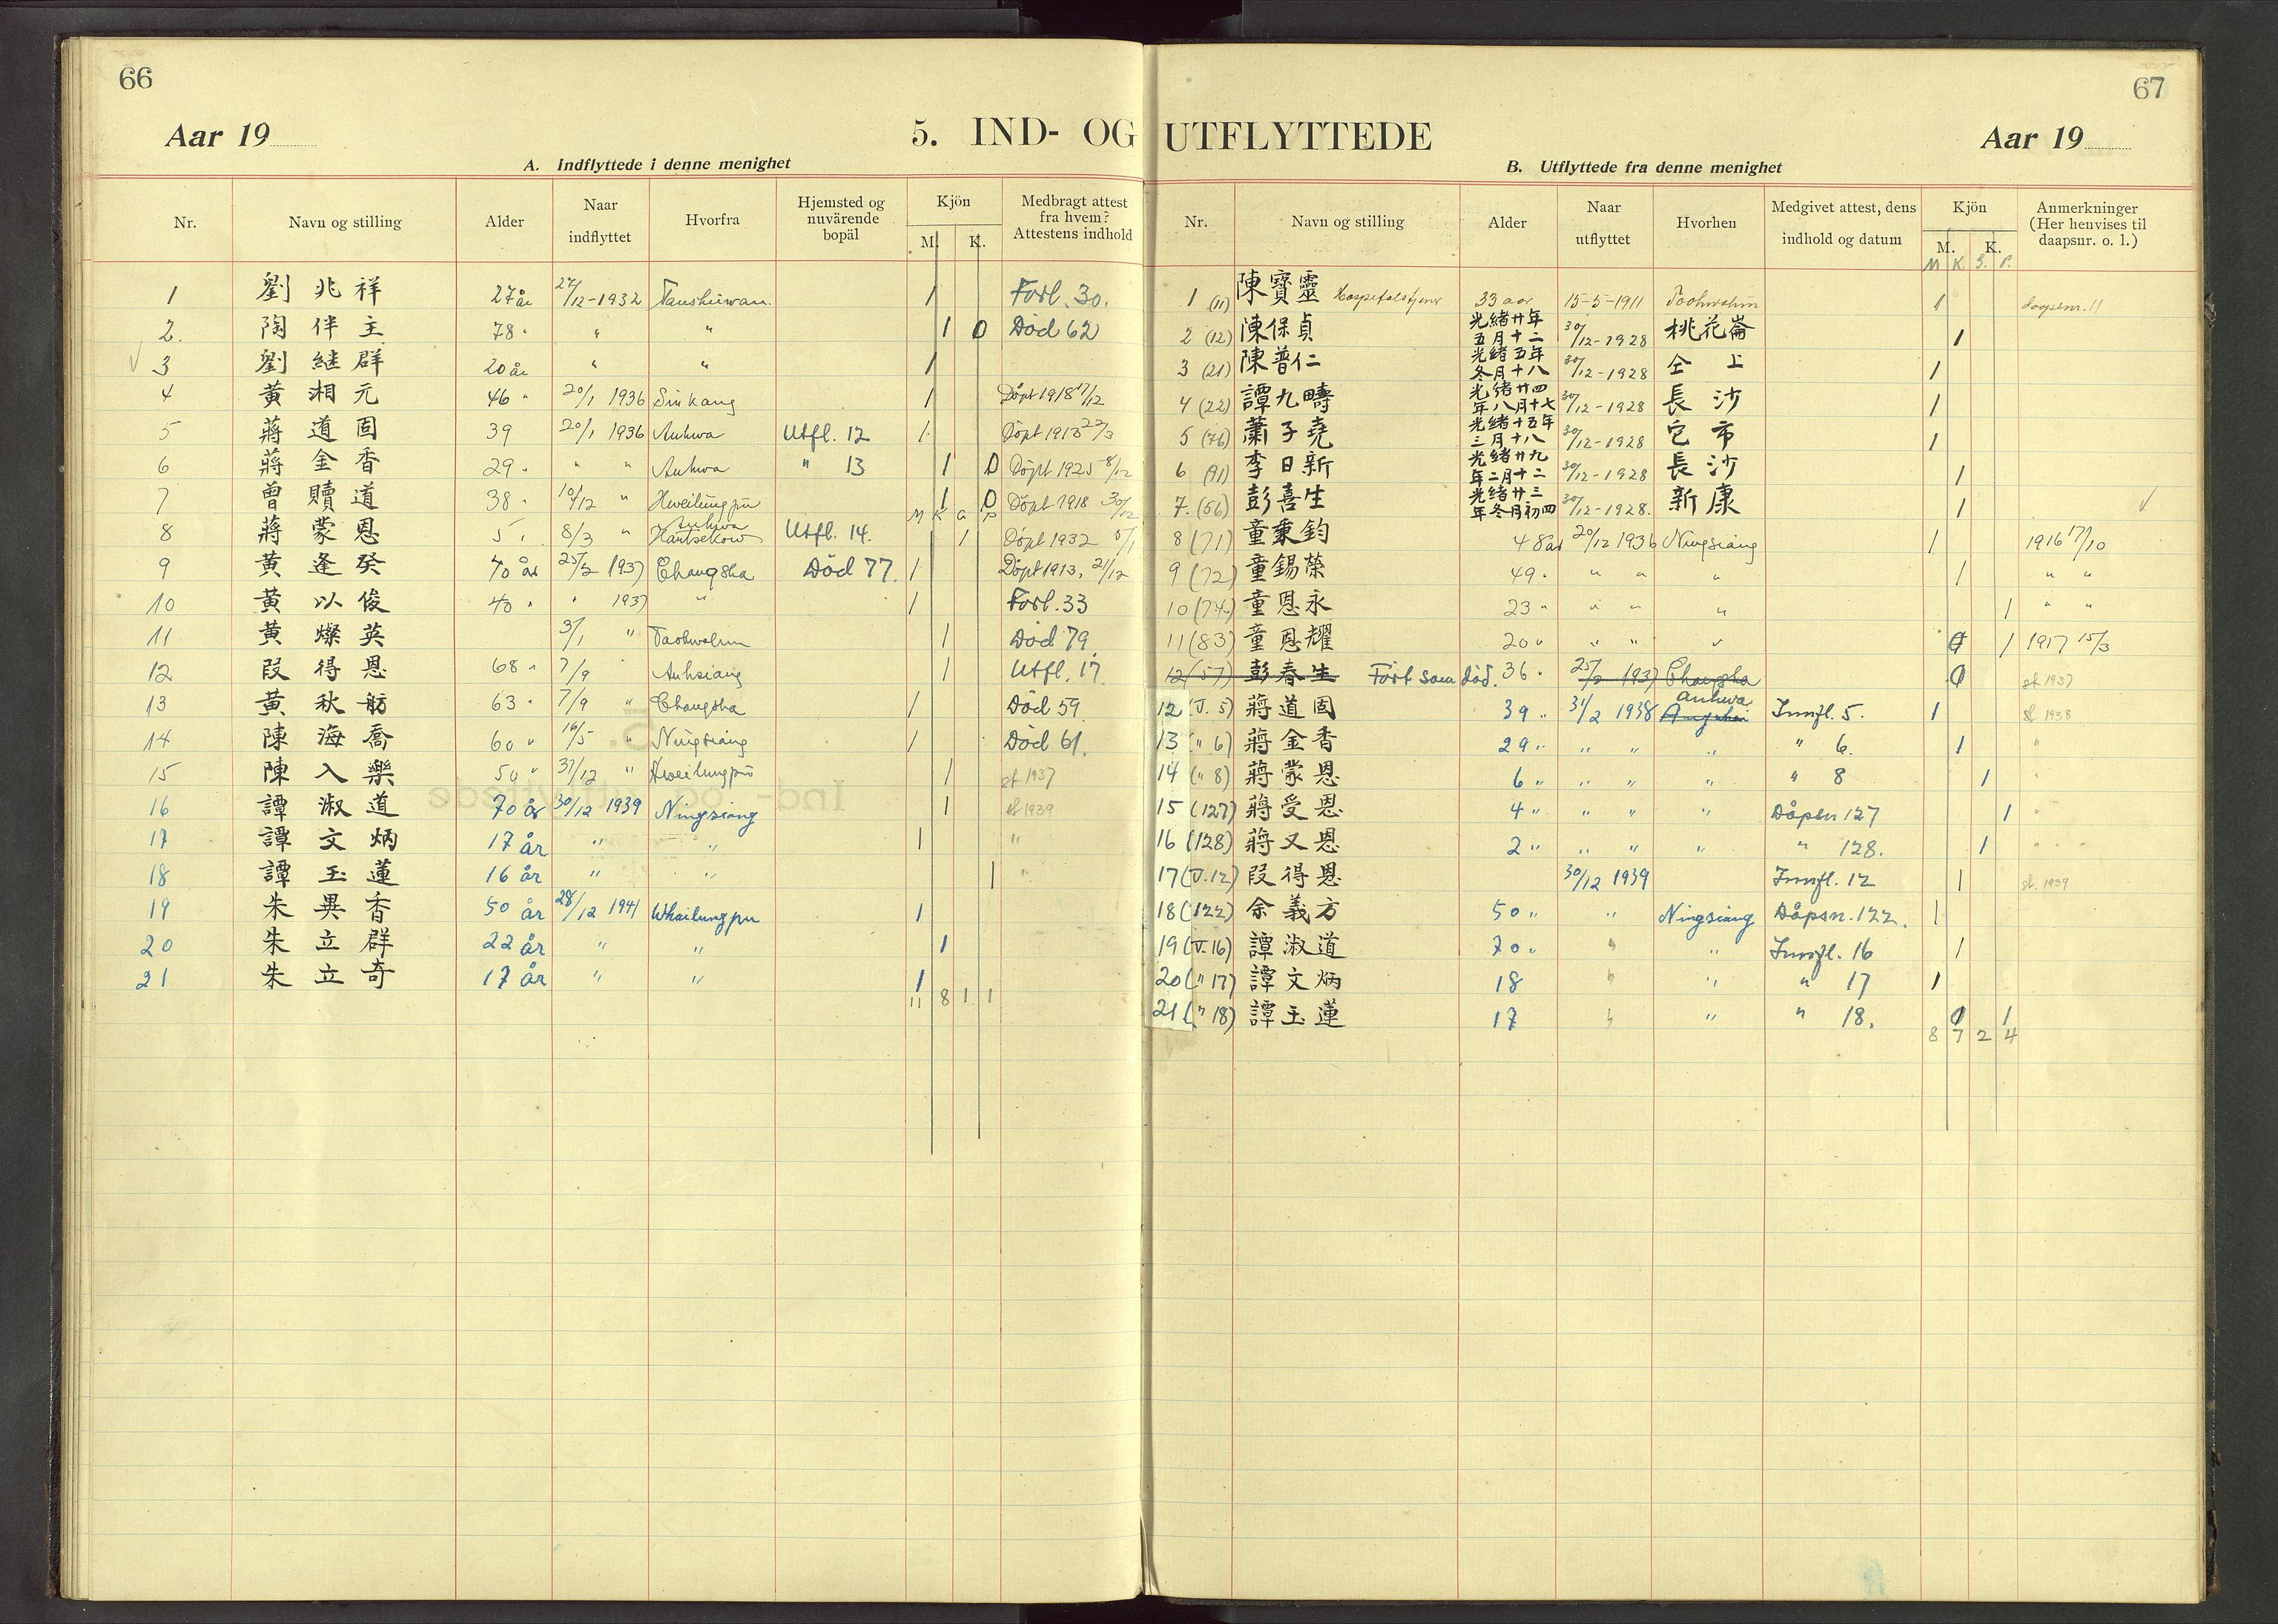 66
Aar 19
5. IND- OG
A. Indflyttede i denne menighet
Nr. Navn og stilling Alder Naar indflyttet Hvorfra Hjemsted og nuvärende bopäl Kjön M. K. Medbragt attest fra hvem? Attestens indhold
1 劉兆祥 27 år 27/12-1932 1 Forl. 30.
2. 陶伴主 78 " " " 1 0 Död 62
3 劉継群 20 år " " 1
4 黃湘元 46 " 20/1 1936 Sinkang 1 Döpt 1918 17/12
5 蔣道固 39 20/1 1936 Anhwa Utfl. 12 1 Döpt 1913 22/3
6 蔣金香 29 " " " Anhwa " 13 1 0 Döpt 1925 8/12
7 曾贖道 38 " 10/12 " Hweilungpu 1 0 Döpt 1918 30/12
M K G P
8 蔣蒙恩 5 " 8/3 " Anhwa Utfl. 14. 1 Döpt 1932 5/1
9 黃逢癸 70 år 25/2 1937 Changsha Död 77. 1 Döpt 1913, 21/12
10 黃以俊 40 " " 1937 " 1 Forl. 33
11 黃燦英 3/1 " Taohwalun 1 Död 79.
12 段得恩 68 " 7/9 " Anhsiang 1 Utfl. 17.
13 黃秋舫 63 " 7/9 " Changsha 1 Död 59
14 陳海喬 60 " 16/5 " Ningsiang 1 Död 61.
15 陳入樂 50 " 31/12 " Hweilungpu 1 st 1937
16 譚淑道 70 år 30/12 1939 Ningsiang 1 st 1939
17 譚文炳 17 år " " 1 "
18 譚玉蓮 16 år " " 1 "
19 朱異香 50 år 28/12 1941 Whailungpu 1
20 朱立群 22 år " " 1
21 朱立奇 17 år " " 1
11 8 1 1
67
UTFLYTTEDE
Aar 19
B. Utflyttede fra denne menighet
Nr. Navn og stilling Alder Naar utflyttet Hvorhen Medgivet attest, dens indhold og datum Kjön M. K. Anmerkninger (Her henvises til daapsnr. o. l.)
M K. G. P.
1 (11) 陳寶靈 Hospitalstjener 33 aar 15-5-1911 Taohwalun 1 daapsnr. 11
2 (12) 陳保貞 光緒廿年五月十二 30/12-1928 桃花崙 1
3 (21) 陳普仁 光緒五年冬月十八 30/12-1928 仝上 1
4 (22) 譚九疇 光緒廿四年八月十七 30/12-1928 長沙 1
5 (76) 蕭子堯 光緒十五年三月十八 30/12-1928 市 1
6 (91) 李日新 光緒廿九年二月十二 30/12-1928 長沙 1
7. (56) 彭喜生 光緒廿三年冬月初四 30/12-1928. 新康 1
8 (71) 童秉鈞 48 år 20/12 1936 Ningsiang 1 1916 17/10
9 (72) 童錫榮 49 " " " " 1 " "
10 (74) 童恩永 23 " " " " 1 " "
11 (83) 童恩耀 20 " " " " 1 1917 15/3
12 (57) 彭春生 Fört som död. 36 " 25/2 1937 Changsha st 1937
12 (V. 5) 蔣道固 39 " 31/2 1938 Anhwa Innfl. 5. 1 st 1938
13 (" 6) 蔣金香 29 " " " " " 6. 1 "
14 (" 8) 蔣蒙恩 6 " " " " " 8 1 "
15 (127) 蔣受恩 4 " " " " Dåpsn 127 1 "
16 (128) 蔣又恩 2 " " " " " 128. 1 " " "
17 (V. 12) 段得恩 30/12 1939 Innfl. 12 1 st. 1939
18 (122) 余義方 50 " " Ningsiang Dåpsn. 122. 1
19 (V. 16) 譚淑道 70 " " " Innfl. 16 1
20 (" 17) 譚文炳 18 " " " 17 1
21 (" 18) 譚玉蓮 17 " " " 18. 1
8 7 2 4